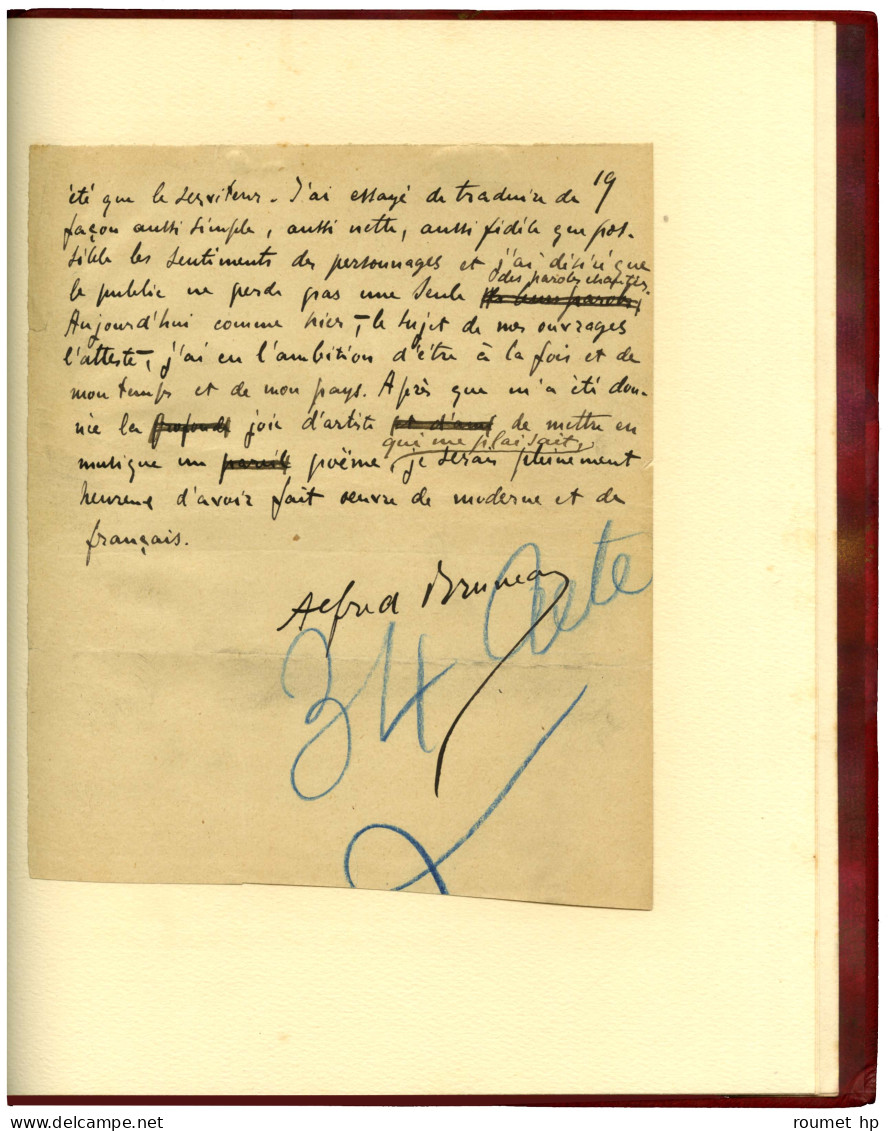 19
été que le serviteur. J'ai essayé de traduire de
façon aussi simple, aussi nette, aussi fidèle que pos-
sible les sentiments des personnages et j'ai désiré que
des paroles chantées.
le public ne perde pas une seule de leurs paroles.
Aujourd'hui comme hier, – le sujet de nos ouvrages
l'atteste –, j'ai eu l'ambition d'être à la fois et de
mon temps et de mon pays. Après que m'a été don-
née la profonde joie d'artiste et d'ami de mettre en
qui me plaisait,
musique un pareil poëme, je serais pleinement
heureux d'avoir fait œuvre de moderne et de
français.
Alfred Bruneau
34
roumet hp